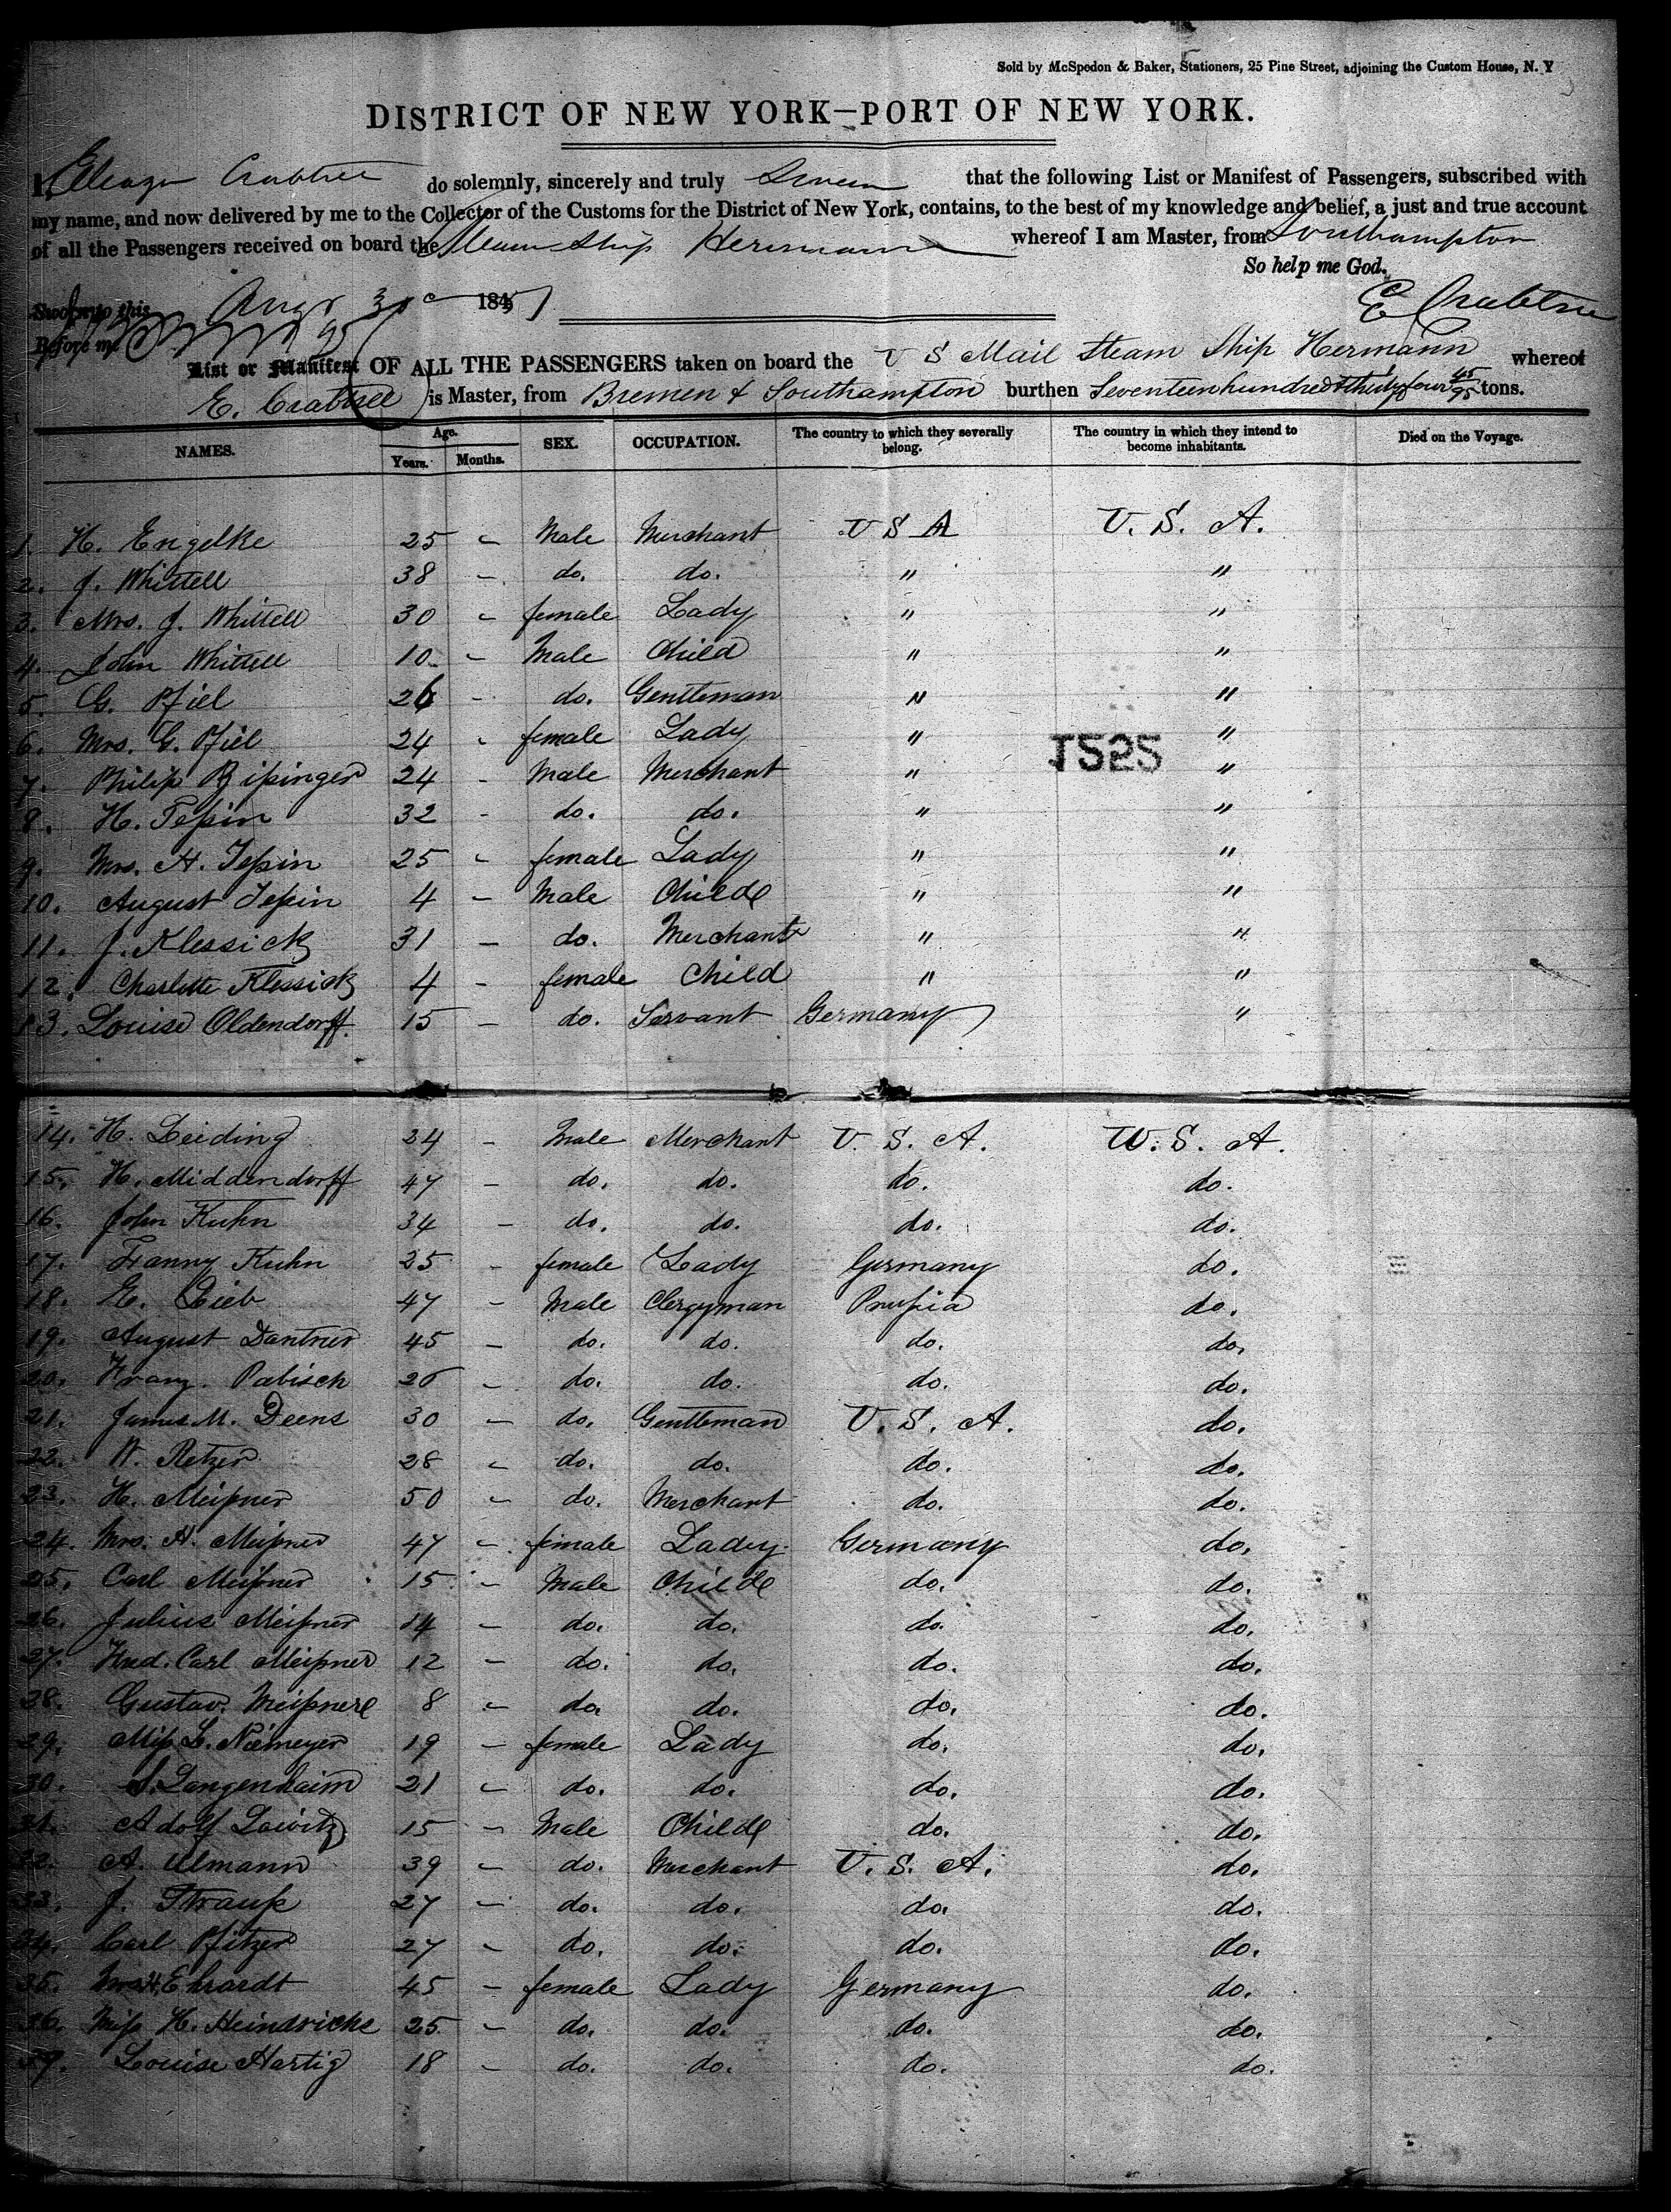 Sold by McSpedon & Baker, Stationers, 25 Pine Street, adjoining the Custom House, N. Y
DISTRICT OF NEW YORK—PORT OF NEW YORK.
I, Crabtree do solemnly, sincerely and truly Swear that the following List or Manifest of Passengers, subscribed with
my name, and now delivered by me to the Collector of the Customs for the District of New York, contains, to the best of my knowledge and belief, a just and true account
of all the Passengers received on board the Steam Ship Hermann whereof I am Master, from Southampton
So help me God.
Sworn to this Augt 30 1851 E Crabtree
Before me
List or Manifest OF ALL THE PASSENGERS taken on board the U S Mail Steam Ship Hermann whereof
E. Crabtree is Master, from Bremen & Southampton burthen Seventeen hundred & thirty four 45/95 tons.
NAMES. Age. Years. Months. SEX. OCCUPATION. The country to which they severally belong. The country in which they intend to become inhabitants. Died on the Voyage.
1. H. Engelke 25 - Male Merchant U S A U. S. A.
2. J. Whittell 38 - do. do. " "
3. Mrs. J. Whittell 30 - female Lady " "
4. John Whittell 10 - Male Child " "
5. G. Pfiel 26 - do. Gentleman " "
6. Mrs. G. Pfiel 24 - female Lady " "
1525
7. Philip 24 - Male Merchant " "
8. H. Teßin 32 - do. do. " "
9. Mrs. H. Teßin 25 - female Lady " "
10. August Teßin 4 - Male Childe " "
11. J. Klessick 31 - do. Merchant " "
12. Charlette Klessick 4 - female Child " "
13. Louise Oldendorff. 15 - do. Servant Germany "
14. H. Leiding 24 - Male Merchant U. S. A. U. S. A.
15. H. Middendorff 47 - do. do. do. do.
16. John Kuhn 34 - do. do. do. do.
17. Franny Kuhn 25 - female Lady Germany do.
18. E. Lieb 47 - Male Clergyman Prußia do.
19. August Dantner 45 - do. do. do. do.
20. Franz. Pabisch 26 - do. do. do. do.
21. James M. Deens 30 - do. Gentleman U. S. A. do.
22. Retzer 28 - do. do. do. do.
23. H. Meißner 50 - do. Merchant do. do.
24. Mrs. H. Meißner 47 - female Lady Germany do.
25. Carl Meißner 15 - Male Childe do. do.
26. Julius Meißner 14 - do. do. do. do.
27. Carl Meißner 12 - do. do. do. do.
28. Gustav. Meißnere 8 - do. do. do. do.
29. Miß L. Niemeyer 19 - female Lady do. do.
30. S. Langenhaim 21 - do. do. do. do.
31. Adolf Lowitz 15 - Male Childe do. do.
32. A. Ulmann 39 - do. Merchant U. S. A. do.
33. J. Strauß 27 - do. do. do. do.
34. Carl Pfitzer 27 - do. do. do. do.
35. Mrs H. Ehrardt 45 - female Lady Germany do.
36. Miß H. Heindrichs 25 - do. do. do. do.
37. Louise Hartig 18 - do. do. do. do.